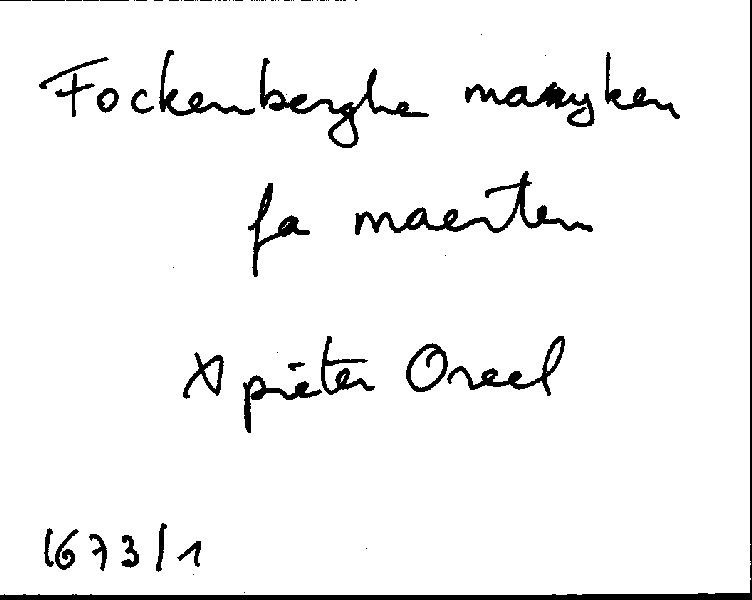 Fockenberghe mayken
fa maerten
x pieter Oreel
1673/1